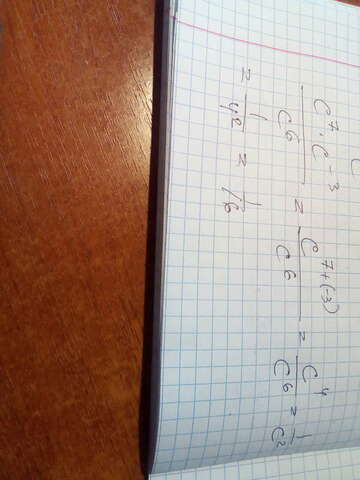 c⁷·c⁻³/c⁶ = c⁷⁺⁽⁻³⁾/c⁶ = c⁴/c⁶ = 1/c²
= 1/4² = 1/16